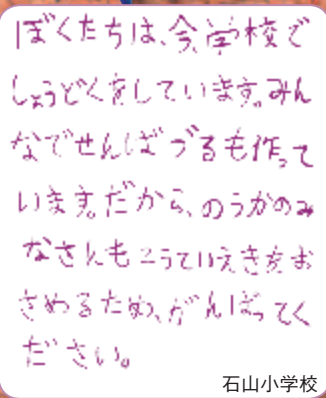 ぼくたちは、今、学校で
しょうどくをしています。みん
なでせんばづるも作って
います。だから、のうかのみ
なさんもこうていえきをお
さめるため、がんばってく
ださい。
石山小学校